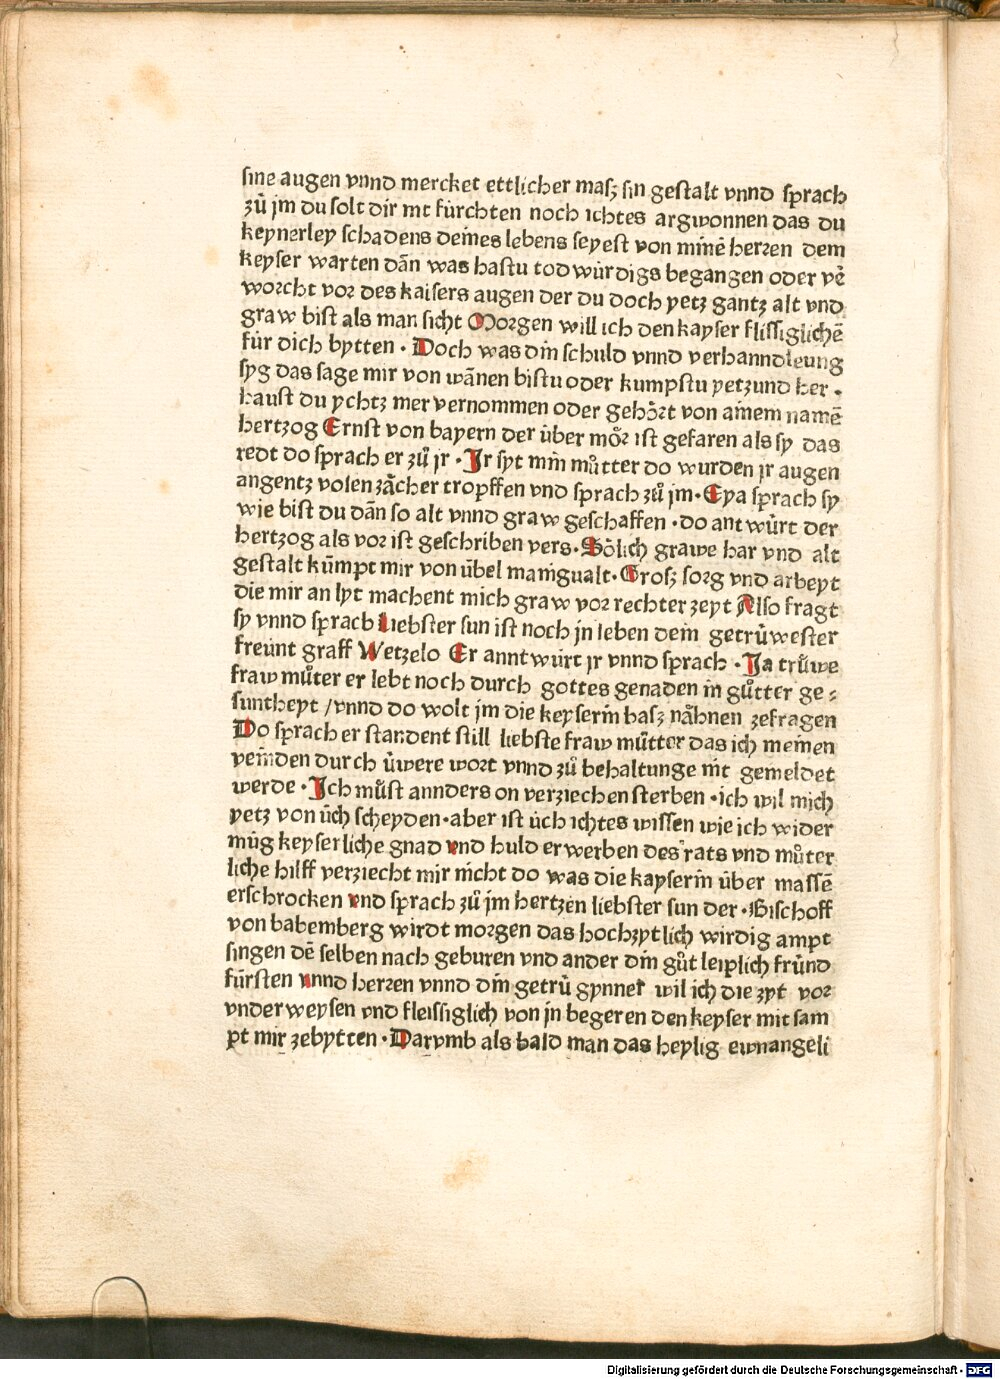 sine augen vnnd mercket ettlicher masz sin gestalt vnnd sprach
zů jm du solt dir nit fürchten noch ichtes argwonnen das du
keynerley schadens deines lebens seyest von minē herren dem
keyser warten dān was hastu tod würdigs begangen oder vē
worcht vor des kaisers augen der du doch yetz gantz alt vnd
graw bist als man sicht Morgen will ich den kayser flissiglichē
für dich bytten · Doch was din schuld vnnd verhanndleung
syg das sage mir von wānen bistu oder kumpstu yetzund her ·
haust du ychtz mer vernommen oder gehört von ainem namē
hertzog Ernst von bayern der über mör ist gefaren als sy das
redt do sprach er zů jr · Ir syt min můtter do wurden jr augen
angentz volen zācher tropffen vnd sprach zů jm · Eya sprach sy
wie bist du dān so alt vnnd graw geschaffen · do antwürt der
hertzog als vor ist geschriben vers · Sölich grawe har vnd alt
gestalt kūmpt mir von übel manigualt · Grosz sorg vnd arbeyt
die mir an lyt machent mich graw vor rechter zeyt Also fragt
sy vnnd sprach liebster sun ist noch jn leben dein getrüwester
freünt graff Wetzelo Er anntwürt jr vnnd sprach · Ja trüwe
fraw můter er lebt noch durch gottes genaden in gůtter ge⸗
suntheyt / vnnd do wolt jm die keyserin basz nāhnen zefragen
Do sprach er standent still liebste fraw můtter das ich meinen
veinden durch üwere wort vnnd zů behaltunge nit gemeldet
werde · Ich můst annders on verziechen sterben · ich wil mich
yetz von üch scheyden · aber ist üch ichtes wissen wie ich wider
müg keyserliche gnad vnd huld erwerben des rats vnd můter
liche hilff verziecht mir nicht do was die kayserin über massē
erschrocken vnd sprach zů jm hertzen liebster sun der · Bischoff
von babemberg wirdt morgen das hochzytlich wirdig ampt
singen dē selben nach geburen vnd ander din gůt leiplich fründ
fürsten vnnd herren vnnd din getrü gynner wil ich die zyt vor
vnderweysen vnd fleissiglich von jn begeren den keyser mit sam
pt mir zebytten · Darvmb als bald man das heylig ewangeli
Digitalisierung gefördert durch die Deutsche Forschungsgemeinschaft - DFG